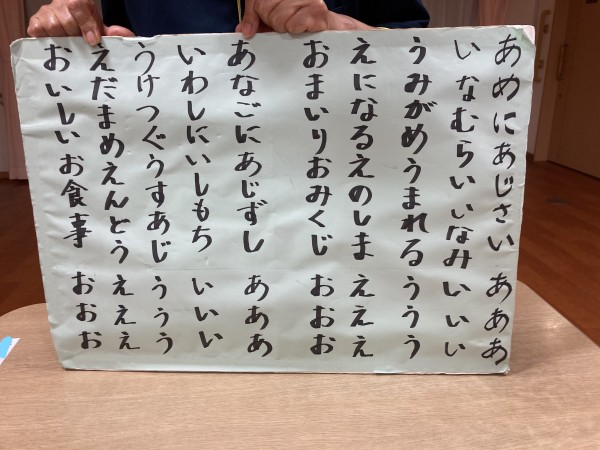 あめにあじさい あああ
いなむらいいなみ いいい
うみがめうまれる ううう
えになるえのしま えええ
おまいりおみくじ おおお
あなごにあじずし あああ
いわしにいしもち いいい
うけつぐうすあじ ううう
えだまめえんとう えええ
おいしいお食事 おおお